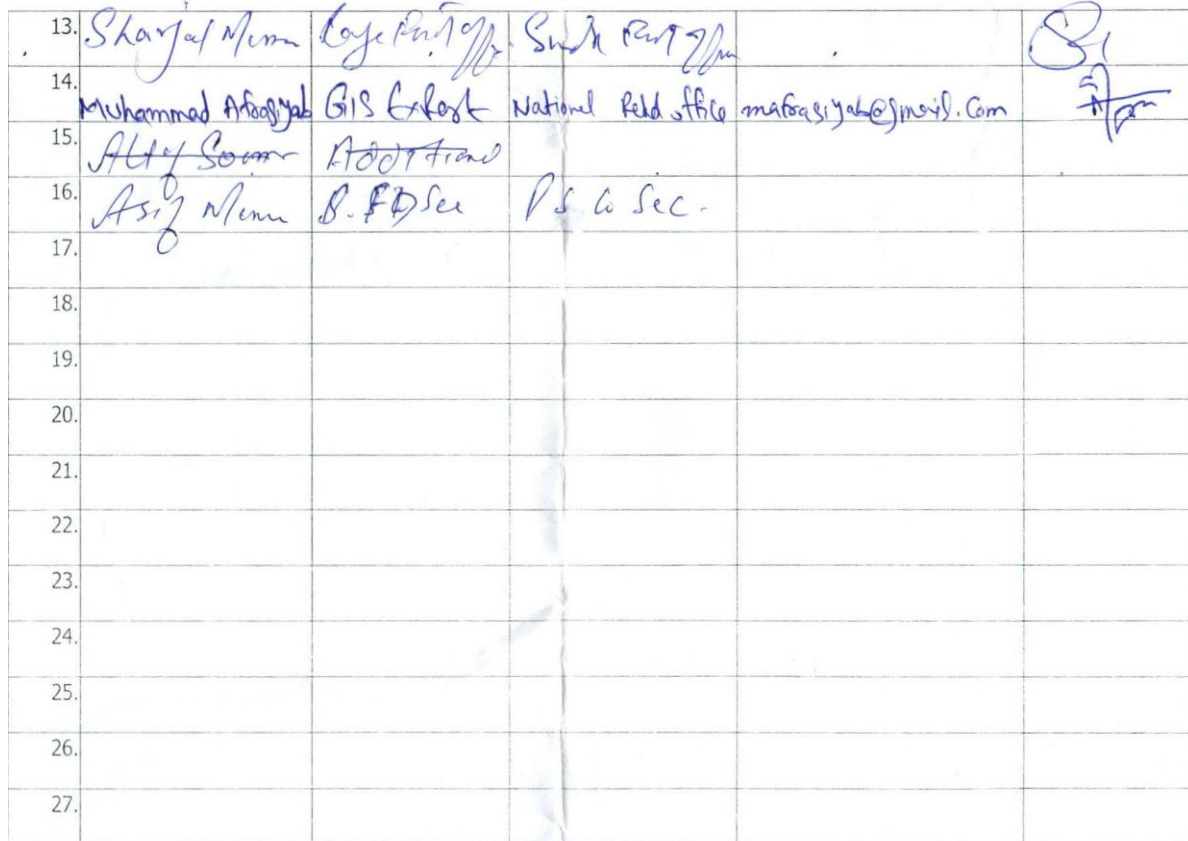 13. Sharjal Memon
14. Muhammad Afrasiyab GIS Expert National Redd office mafrasiyab@gmail.com
15. Altaf Soomr Additional
16. Asif Memon B. FD Sec P S to Sec.
17.
18.
19.
20.
21.
22.
23.
24.
25.
26.
27.